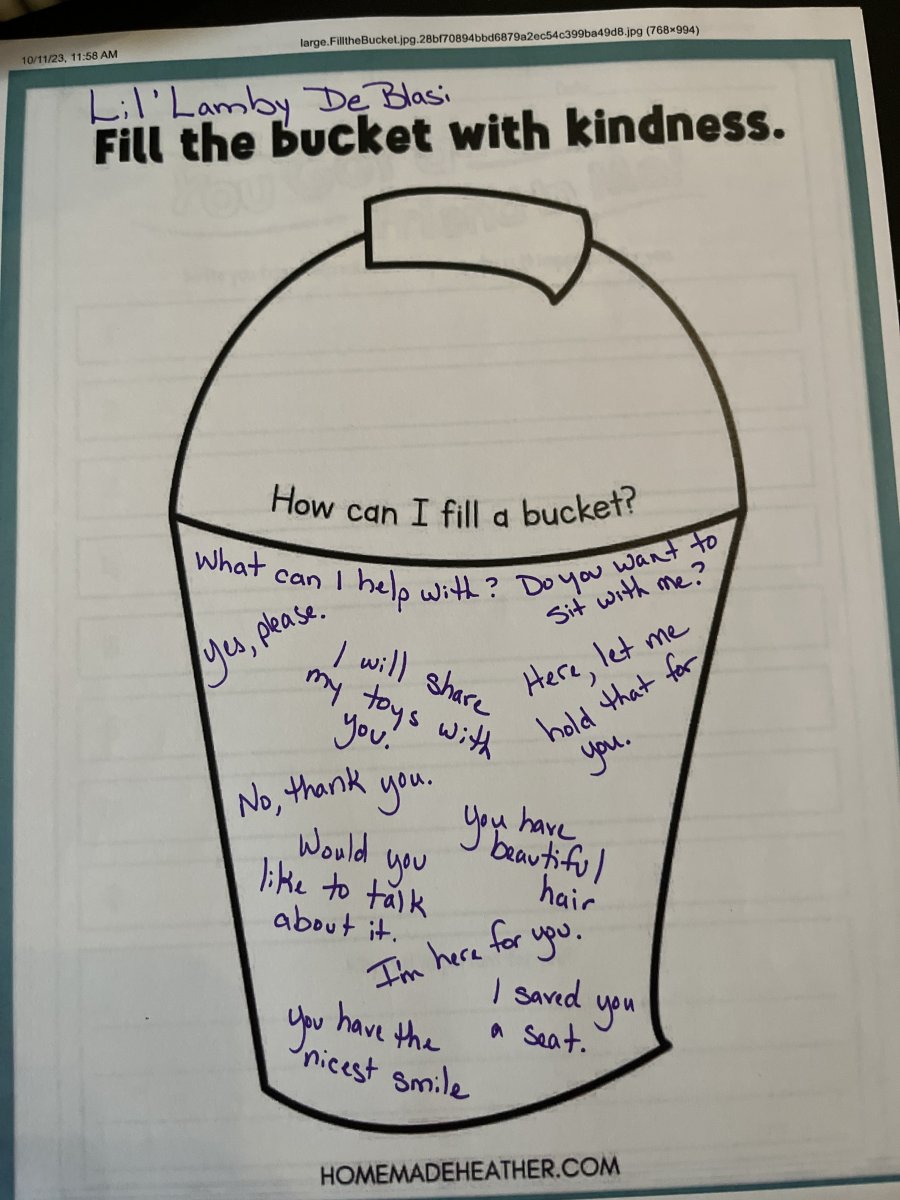 10/11/23, 11:58 AM
large.FilltheBucket.jpg.28bf70894bbd6879a2ec54c399ba49d8.jpg (768×994)
Lil' Lamby DeBlasi
Fill the bucket with kindness.
How can I fill a bucket?
What can I help with?
Do you want to
sit with me?
Yes, please.
I will share
my toys with
you.
Here, let me
hold that for
you.
No, thank you.
You have
beautiful
hair
Would you
like to talk
about it.
I'm here for you.
I saved you
a seat.
You have the
nicest smile
HOMEMADEHEATHER.COM